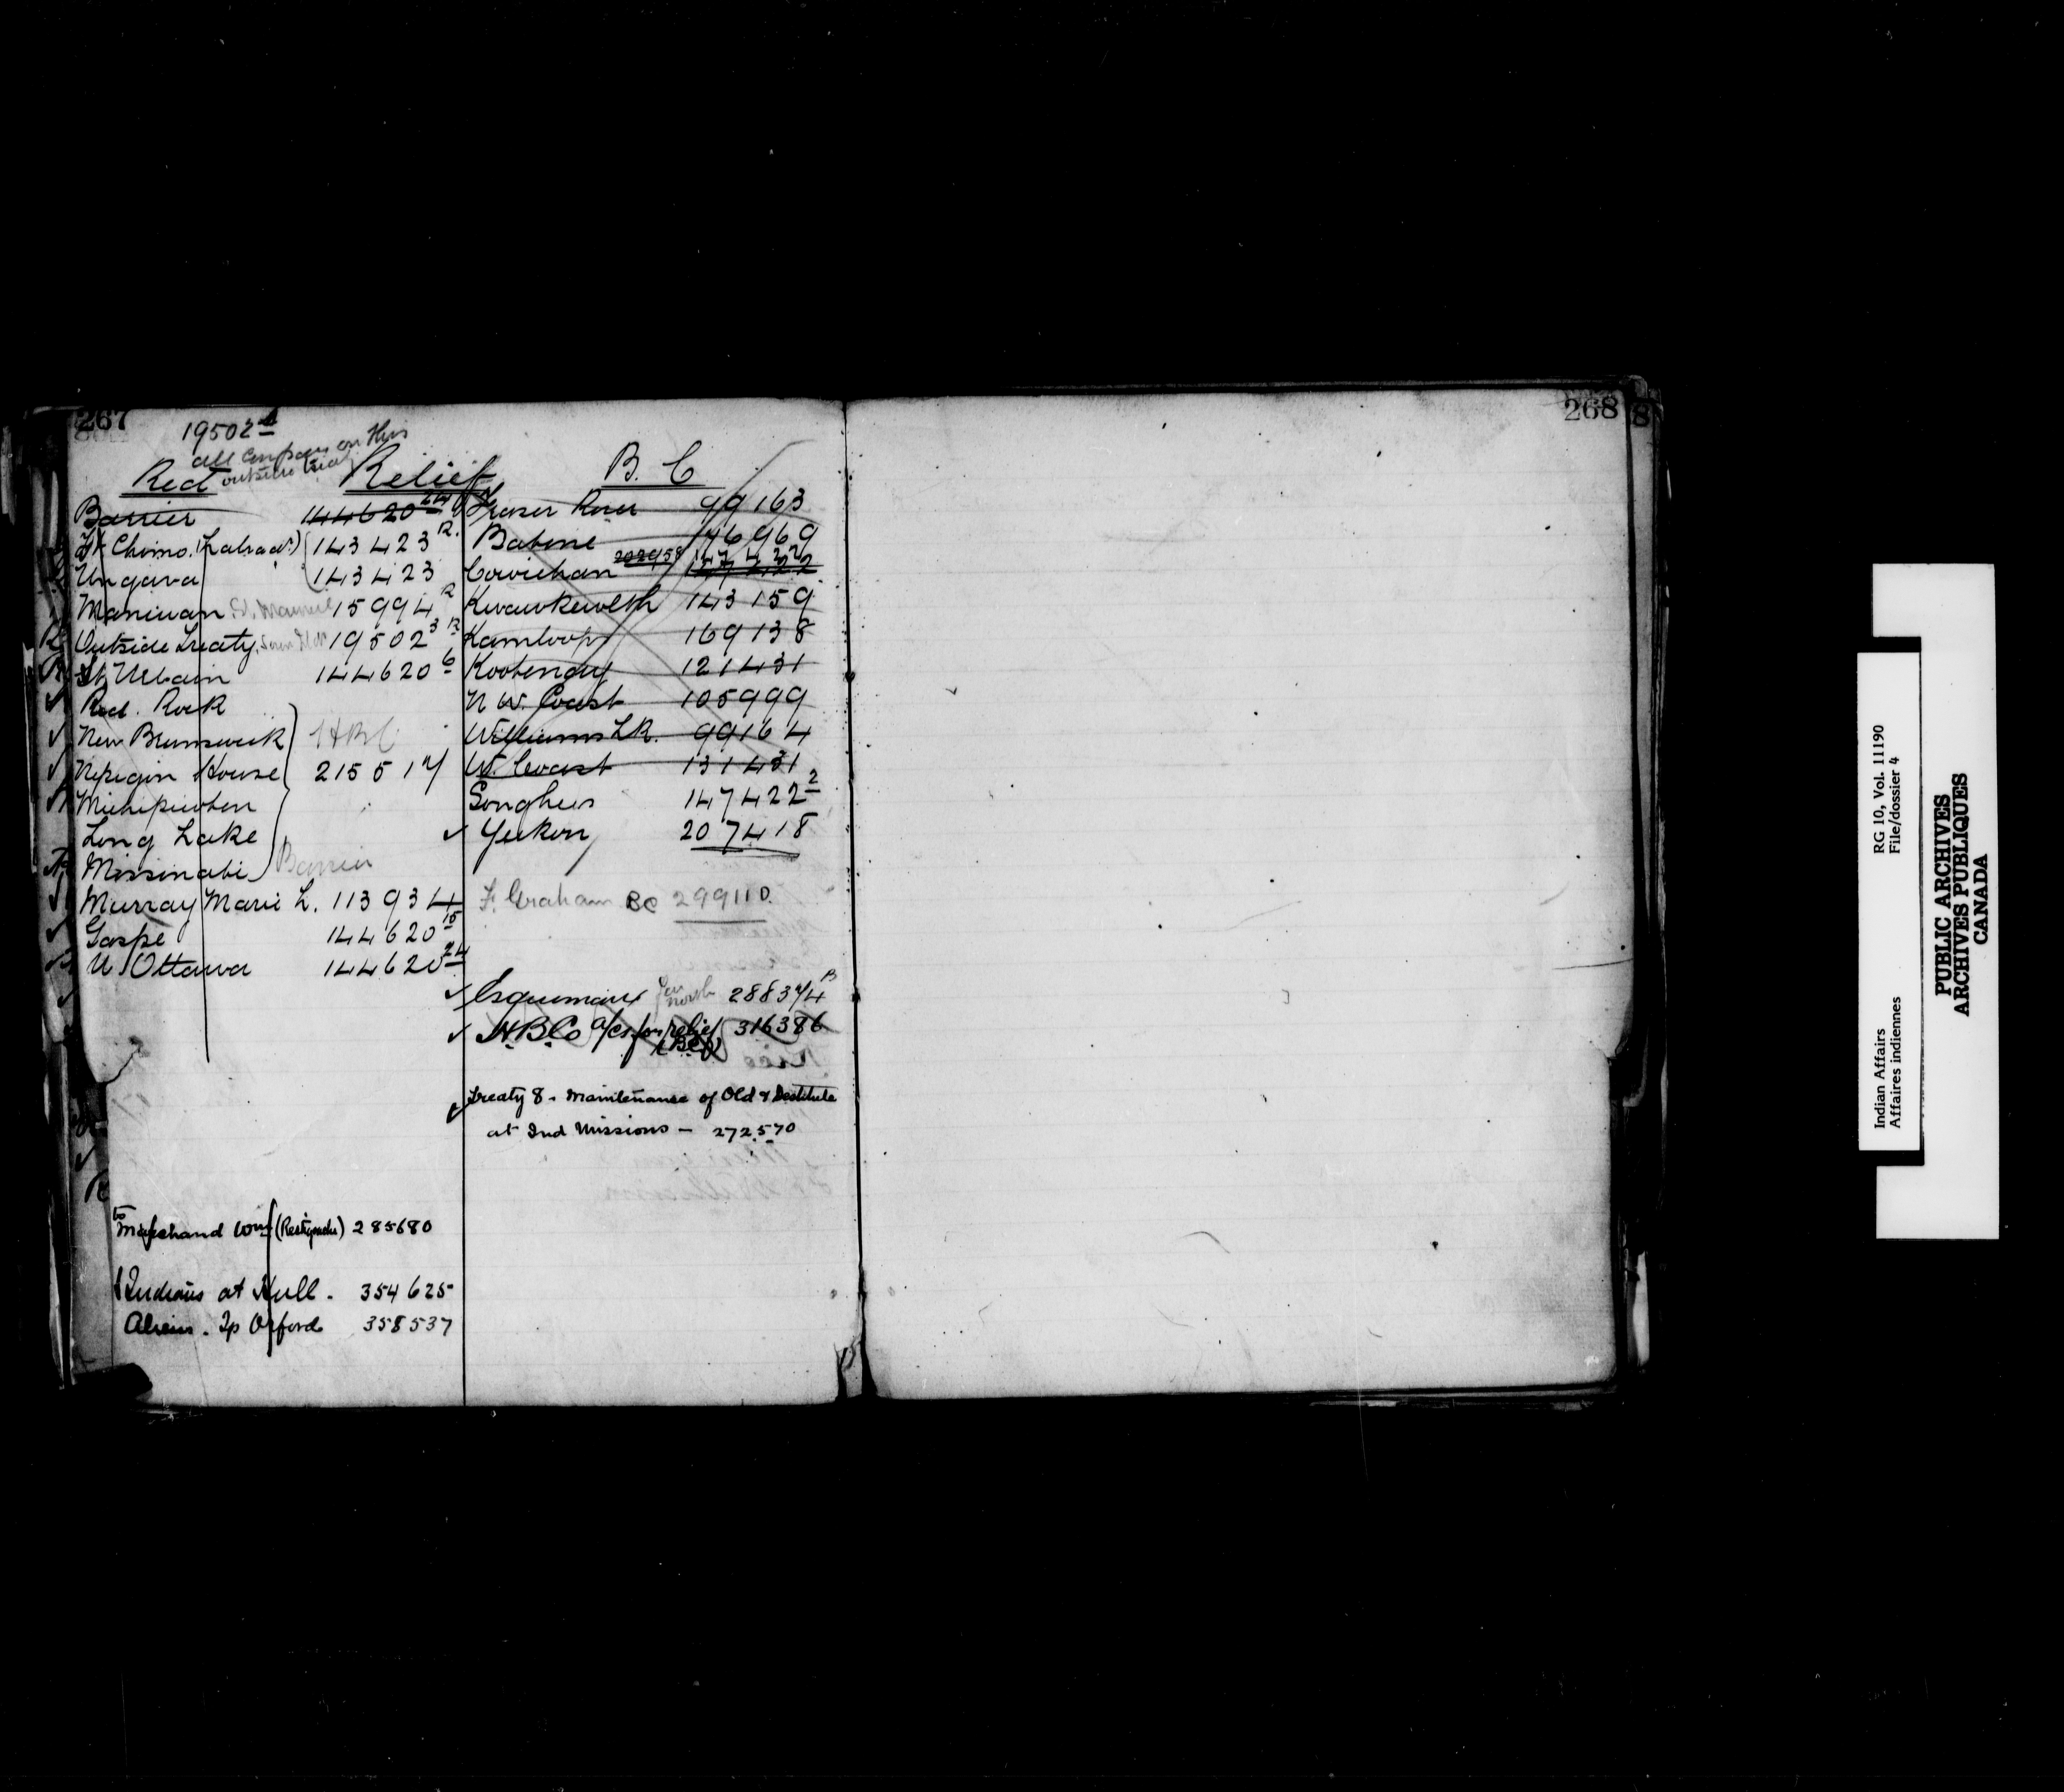 267
19502
all on this
outside
Red Relief
Barrier 144620
Ft Chimo. (Labrador) 143423 R.
Ungava 143423
Maniwan 15994 R
Outside Treaty 19502 3 R
St Urbain 144620 6
Red. Rock
New Brunswick HBC
Nepigon House 215517
Michipicoten
Long Lake
Missinabi Barrier
Murray Marie L. 113934
Gaspe 144620 15
U. Ottawa 144620 24
Wm (Restigouche) 285680
Indians at Hull. 354625
Tp Orford 358537
B. C
Fraser River 99163
Babine 176969
Cowichan 202958 147422
Kwawkewlth 143159
Kamloops 169138
Kootenay 121431
N W. Coast 105999
Williams LK. 99164
W. Coast 131431
Songhees 147422 2
Yukon 207418
F. Graham BC 299110
Esquimaux Far north 288374 B
H.B.Co a/cs for relief 316386
(B.C.)
Treaty 8 - Maintenance of Old & Destitute
at Ind Missions - 272570
268
8
Indian Affairs RG 10, Vol. 11190
Affaires indiennes File/dossier 4
PUBLIC ARCHIVES
ARCHIVES PUBLIQUES
CANADA